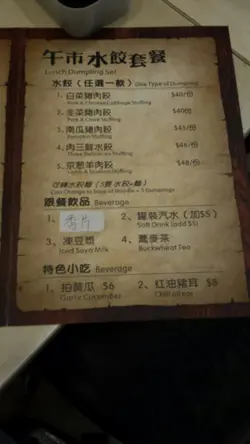 午市水餃套餐
Lunch Dumpling Set
水餃（任選一款）(One Type of Dumpling)
1、白菜豬肉餃 $40/份
Pork & Chinese Cabbage Stuffing
2、韭菜豬肉餃 $40/份
Pork & Chive Stuffing
3、南瓜豬肉餃 $45/份
Pumpkin Stuffing
4、肉三鮮水餃 $45/份
Three Delicacies Stuffing
5、京蔥羊肉餃 $48/份
Lamb & Scallion Stuffing
可轉水餃麵（5隻水餃+麵）
Can Change to Soup of Noodle + 5 Dumplings
跟餐飲品 Beverage
1、香片
2、罐裝汽水（加$5）
Soft Drink (add $5)
3、凍豆漿
Iced Soya Milk
4、蕎麥茶
Buckwheat Tea
特色小吃 Beverage
1、拍黃瓜 $6
Garlic Cucumber
2、紅油豬耳 $8
Chili oil ear